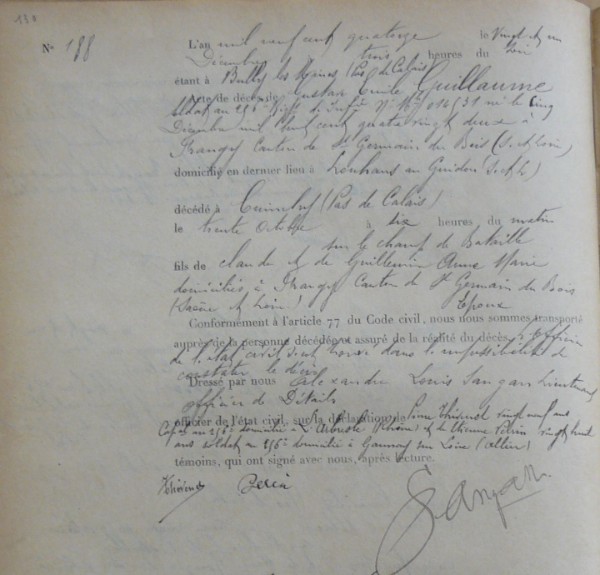 138
N° 188
L'an mil neuf cent quatorze le vingt et un
Décembre trois heures du soir
étant à Bully les Mines (Pas de Calais)
Acte de décès de Gustave Emile Guillaume
soldat au 256e Régt d' Infie N° Mle né le cinq
Décembre mil huit cent quatre vingt deux à
Frangy Canton de St Germain du Bois (S. et Loire)
domicilié en dernier lieu à Louhans au Guidon (S. et L)
décédé à Cuinchy (Pas de Calais)
le trente Octobre à six heures du matin
sur le champ de Bataille
fils de Claude et de Guillemin Anne Marie
domiciliés à Frangy Canton de St Germain du Bois
(Saône et Loire)
Conformément à l'article 77 du Code civil, nous nous sommes transporté
auprès de la personne décédée et assuré de la réalité du décès, l'officier
de l'état civil s'est trouvé dans l'impossibilité de
constater le décès
Dressé par nous Alexandre Louis Lieutenant
officier de Détails
officier de l'état civil, sur la déclaration de vingt neuf ans
au 256e domicilié à (Rhône) et de Etienne vingt huit
ans soldat au 256e domicilié à Gannay sur Loire (Allier)
témoins, qui ont signé avec nous, après lecture.